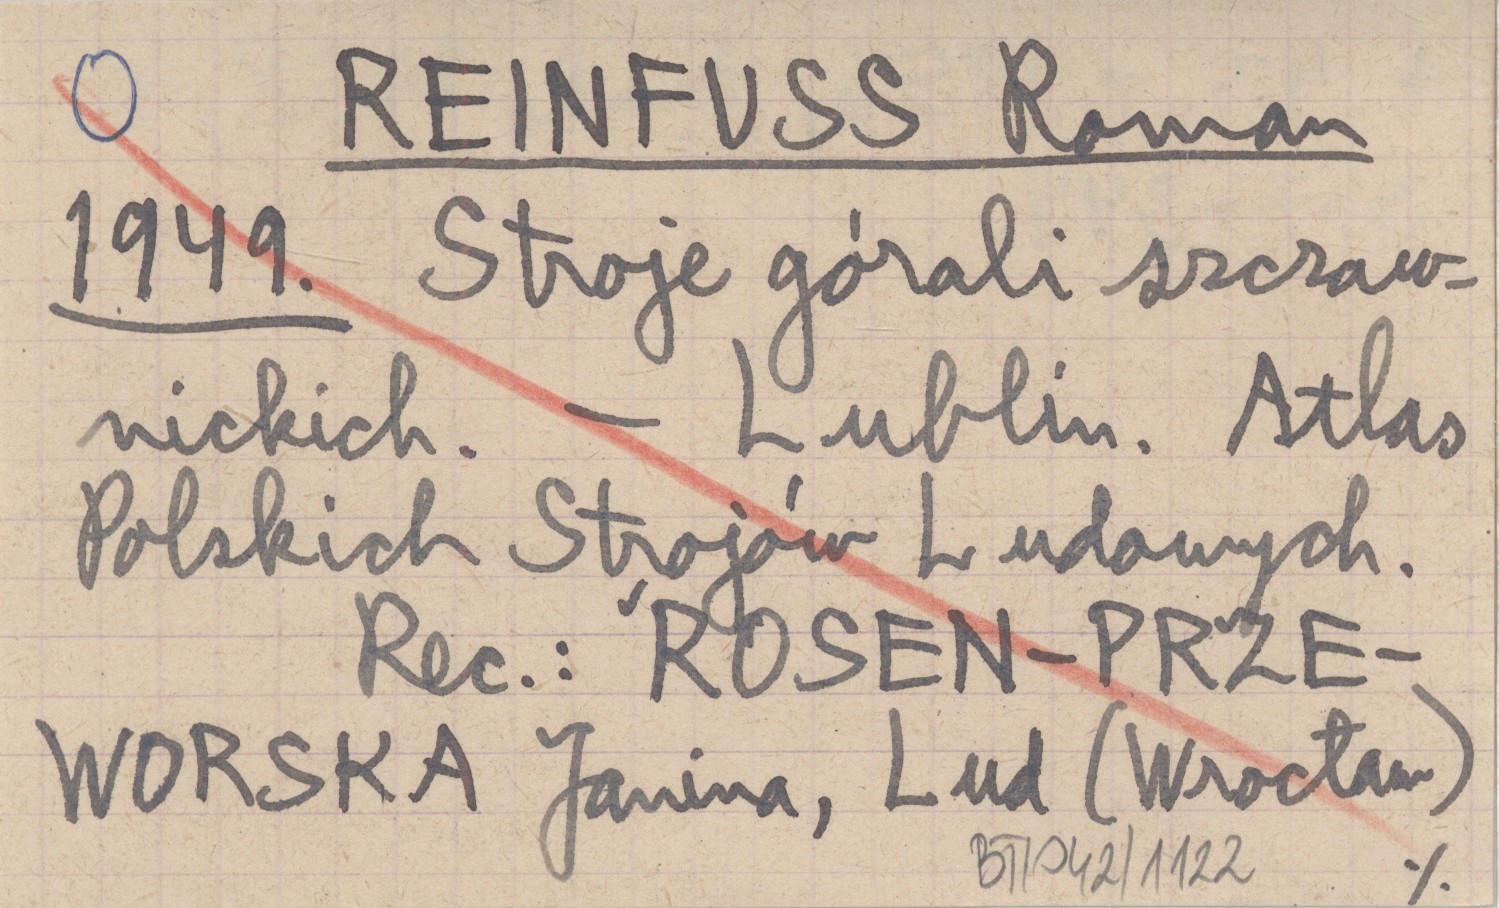 REINFUSS Roman
1949. Stroje górali szczaw-
nickich. — Lublin. Atlas
Polskich Strojów Ludowych.
Rec.: ROSEN-PRZE-
WORSKA Janina, Lud (Wrocław)
./.